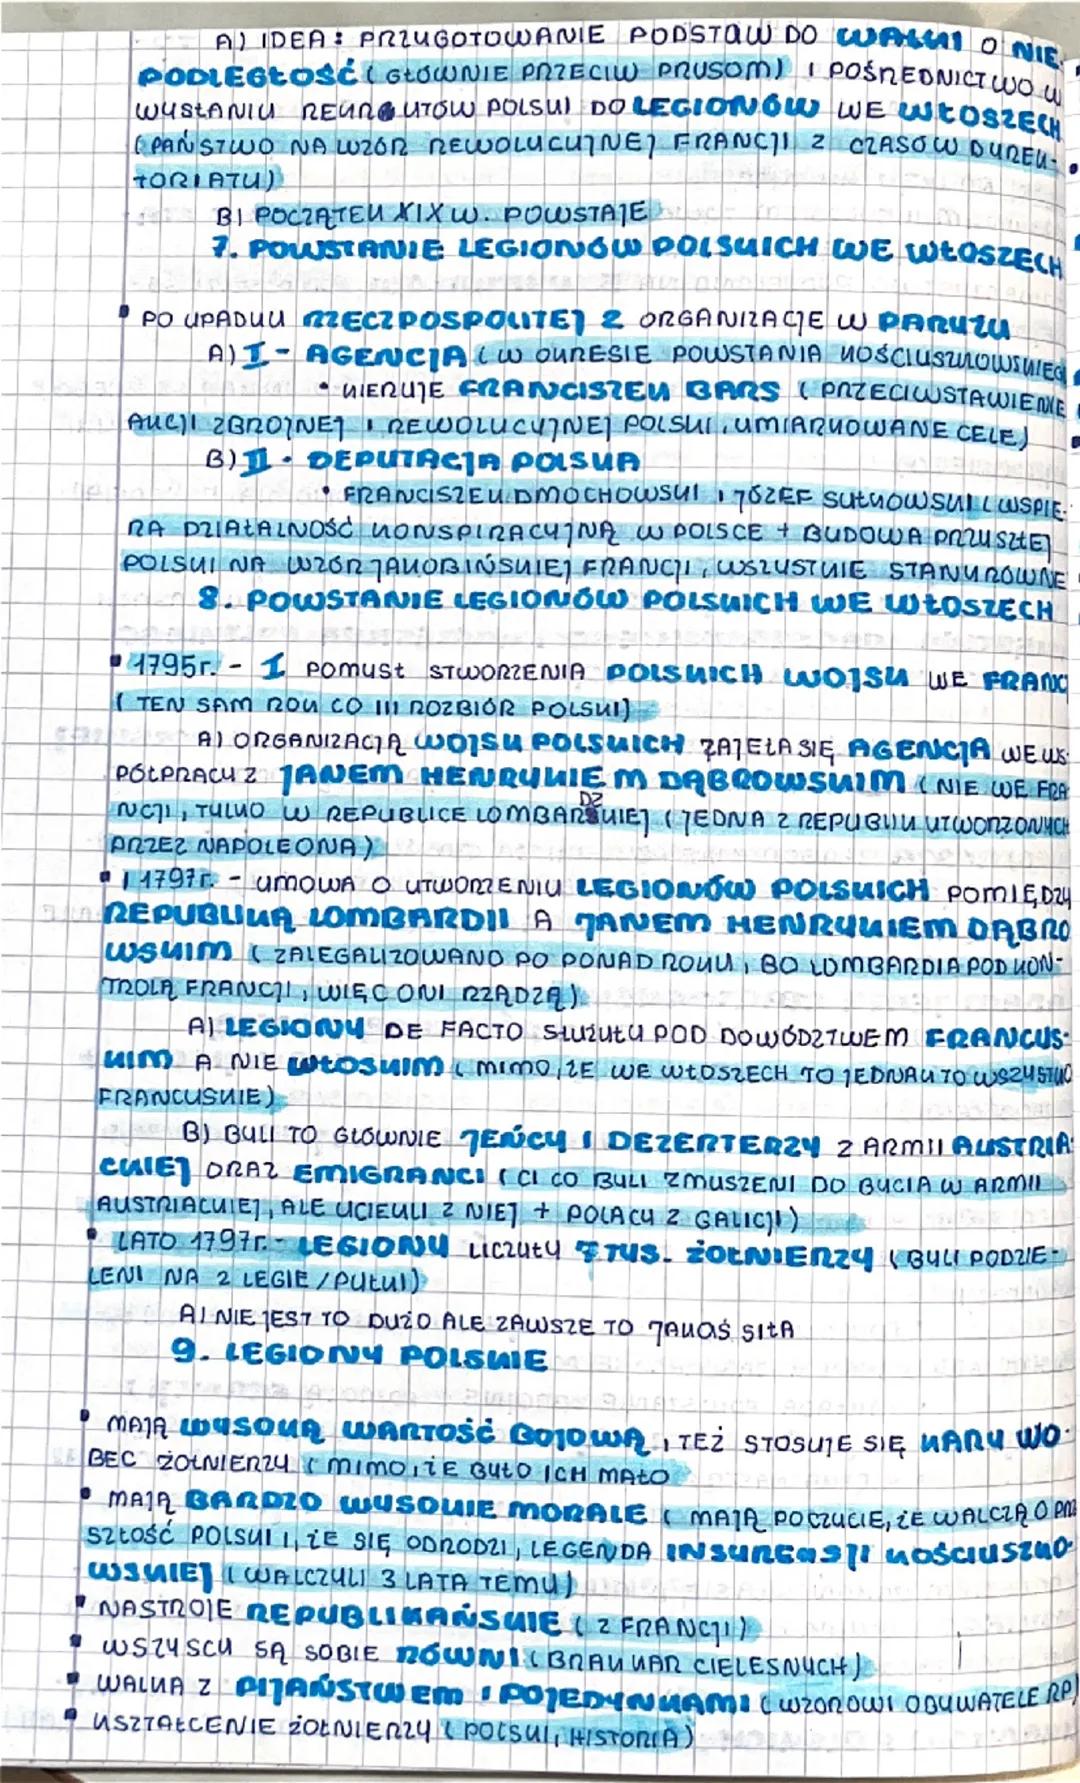 A) IDEA: PRZYGOTOWANIE PODSTAW DO WALKI O NIE-
PODLEGŁOŚĆ (GŁÓWNIE PRZECIW PRUSOM) I POŚREDNICTWO W
WYSŁANIU REKRUTÓW POLSKI DO LEGIONÓW WE WŁOSZECH
(PAŃSTWO NA WZÓR REWOLUCYJNEJ FRANCJI Z CZASÓW DYREK-
TORIATU)
B) POCZĄTEK XIX W. POWSTAJE
7. POWSTANIE LEGIONÓW POLSKICH WE WŁOSZECH
• PO UPADKU RZECZPOSPOLITEJ 2 ORGANIZACJE W PARYŻU
A) I - AGENCJA (W OKRESIE POWSTANIA KOŚCIUSZKOWSKIEG
• KIERUJE FRANCISZEK BARS (PRZECIWSTAWIENIE
AKCJI ZBROJNEJ I REWOLUCYJNEJ POLSKI, UMIARKOWANE CELE)
B) II - DEPUTACJA POLSKA
• FRANCISZEK DMOCHOWSKI I JÓZEF SUŁKOWSKI (WSPIE-
RA DZIAŁALNOŚĆ KONSPIRACYJNĄ W POLSCE + BUDOWA PRZYSZŁEJ
POLSKI NA WZÓR JAKOBIŃSKIEJ FRANCJI, WSZYSTKIE STANY RÓWNE
8. POWSTANIE LEGIONÓW POLSKICH WE WŁOSZECH
• 1795r. - I POMYSŁ STWORZENIA POLSKICH WOJSK WE FRANC
(TEN SAM ROK CO III ROZBIÓR POLSKI)
A) ORGANIZACJĄ WOJSK POLSKICH ZAJĘŁA SIĘ AGENCJA WE WS-
PÓŁPRACY Z JANEM HENRYKIEM DĄBROWSKIM (NIE WE FRA
NCJI, TYLKO W REPUBLICE LOMBARDZKIEJ (JEDNA Z REPUBLIK UTWORZONYCH
PRZEZ NAPOLEONA)
• I 1797r. - UMOWA O UTWORZENIU LEGIONÓW POLSKICH POMIĘDZY
REPUBLIKĄ LOMBARDII A JANEM HENRYKIEM DĄBRO
WSKIM (ZALEGALIZOWANO PO PONAD ROKU, BO LOMBARDIA POD KON-
TROLĄ FRANCJI, WIĘC ONI RZĄDZĄ)
A) LEGIONY DE FACTO SŁUŻYŁY POD DOWÓDZTWEM FRANCUS-
KIM A NIE WŁOSKIM (MIMO, ŻE WE WŁOSZECH TO JEDNAK TO WSZYSTKO
FRANCUSKIE)
B) BYLI TO GŁÓWNIE JEŃCY I DEZERTERZY Z ARMII AUSTRIA-
CKIEJ ORAZ EMIGRANCI (CI CO BYLI ZMUSZENI DO BYCIA W ARMII
AUSTRIACKIEJ, ALE UCIEKLI Z NIEJ + POLACY Z GALICJI)
• LATO 1797r. - LEGIONY LICZYŁY 7 TYS. ŻOŁNIERZY (BYLI PODZIE-
LENI NA 2 LEGIE/PUŁKI)
A) NIE JEST TO DUŻO ALE ZAWSZE TO JAKAŚ SIŁA
9. LEGIONY POLSKIE
• MAJĄ WYSOKĄ WARTOŚĆ BOJOWĄ, TEŻ STOSUJE SIĘ KARY WO-
BEC ŻOŁNIERZY (MIMO, ŻE BYŁO ICH MAŁO
• MAJĄ BARDZO WYSOKIE MORALE (MAJĄ POCZUCIE, ŻE WALCZĄ O PRZ
SZŁOŚĆ POLSKI I, ŻE SIĘ ODRODZI, LEGENDA INSUREKCJI KOŚCIUSZKO-
WSKIEJ (WALCZYLI 3 LATA TEMU)
• NASTROJE REPUBLIKAŃSKIE (Z FRANCJI)
• WSZYSCY SĄ SOBIE RÓWNI (BRAK KAR CIELESNYCH)
• WALKA Z PIJAŃSTWEM I POJEDYNKAMI (WZOROWI OBYWATELE RP)
• KSZTAŁCENIE ŻOŁNIERZY (POLSKI, HISTORIA)